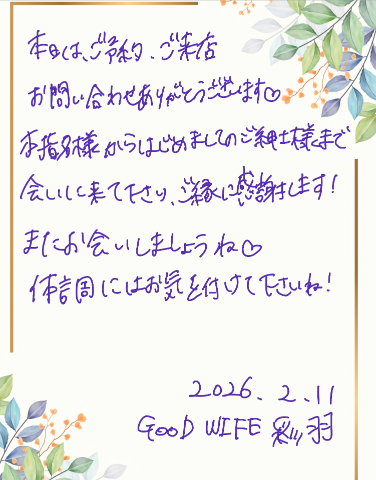 本日は、ご予約、ご来店
お問い合わせありがとうございます♡
本指名様からはじめましてのご紳士様まで
会いに来て下さり、ご縁に感謝します！
またお会いしましょうね♡
体調にはお気を付けて下さいね！
2026.2.11
GOOD WIFE 彩羽